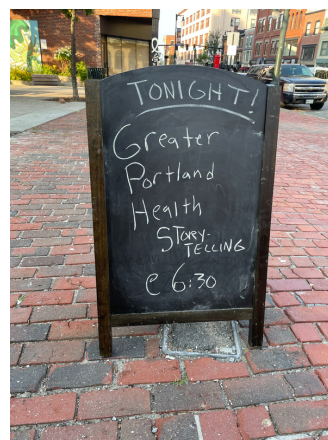 TONIGHT!
Greater
Portland
Health
STORY-
TELLING
@ 6:30